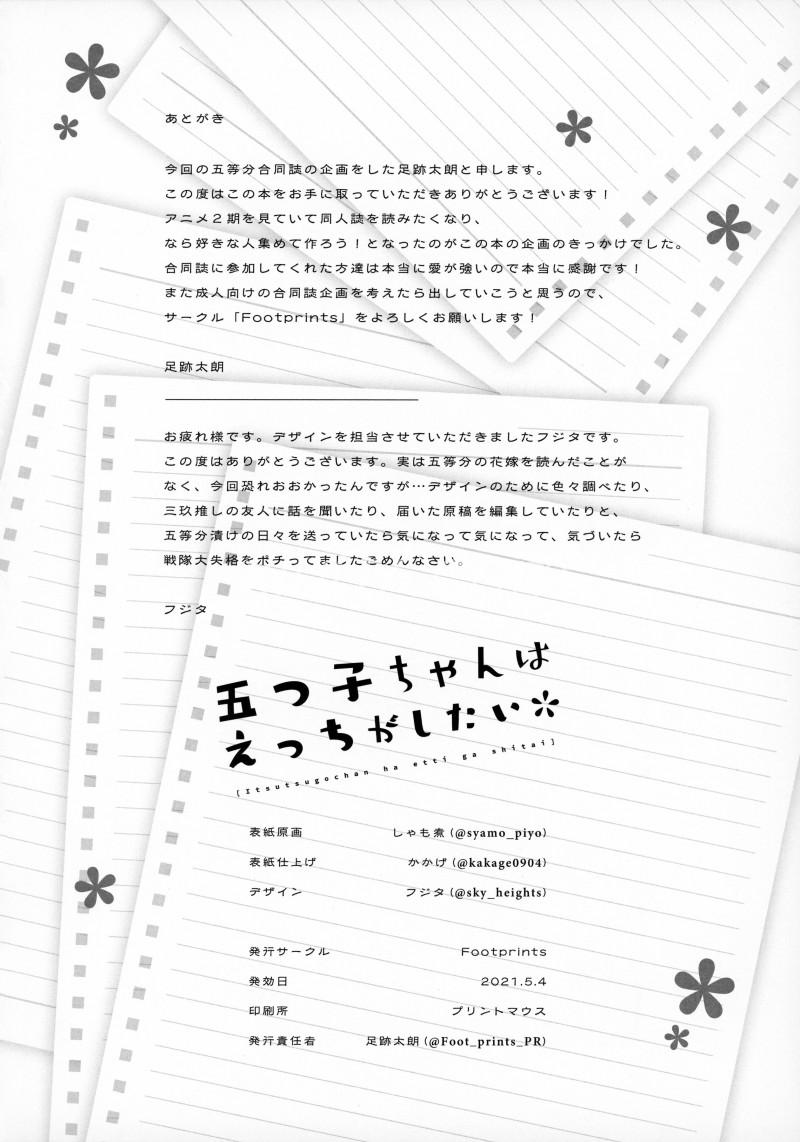 あとがき
今回の五等分合同誌の企画をした足跡太朗と申します。
この度はこの本をお手に取っていただきありがとうございます！
アニメ２期を見ていて同人誌を読みたくなり、
なら好きな人集めて作ろう！となったのがこの本の企画のきっかけでした。
合同誌に参加してくれた方達は本当に愛が強いので本当に感謝です！
また成人向けの合同誌企画を考えたら出していこうと思うので、
サークル「Footprints」をよろしくお願いします！
足跡太朗
お疲れ様です。デザインを担当させていただきましたフジタです。
この度はありがとうございます。実は五等分の花嫁を読んだことが
なく、今回恐れおおかったんですが…デザインのために色々調べたり、
三玖推しの友人に話を聞いたり、届いた原稿を編集していたりと、
五等分漬けの日々を送っていたら気になって気になって、気づいたら
戦隊大失格をポチってましたごめんなさい。
フジタ
五つ子ちゃんは
えっちがしたい
[Itsutsugochan ha etti ga shitai]
表紙原画 しゃも煮(@syamo_piyo)
表紙仕上げ かかげ(@kakage0904)
デザイン フジタ(@sky_heights)
発行サークル Footprints
発効日 2021.5.4
印刷所 プリントマウス
発行責任者 足跡太朗(@Foot_prints_PR)